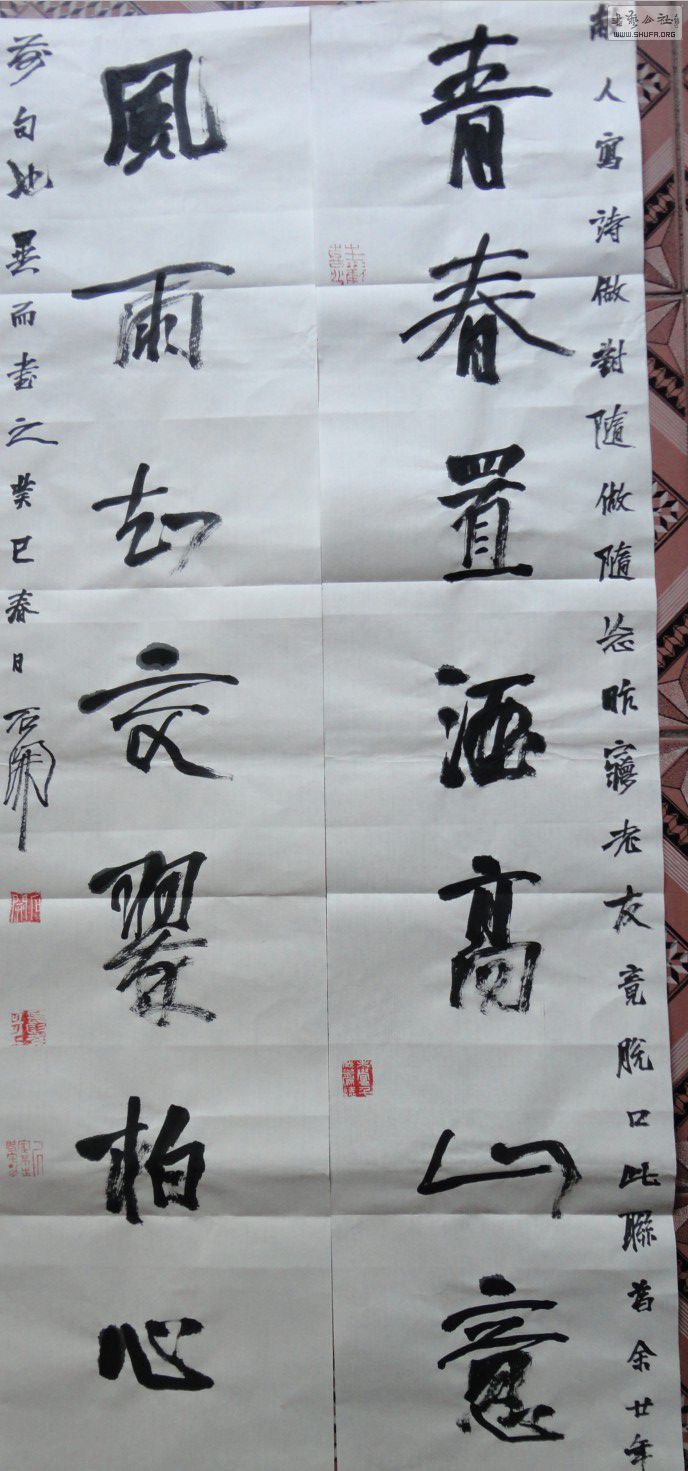 书艺公社
WWW.SHUFA.ORG
人寫詩做對隨做隨忘昨老友竟脫口此聯昔余廿年
青春置酒高山意
風雨却交翠柏心
前句也異而書之癸巳春日石開